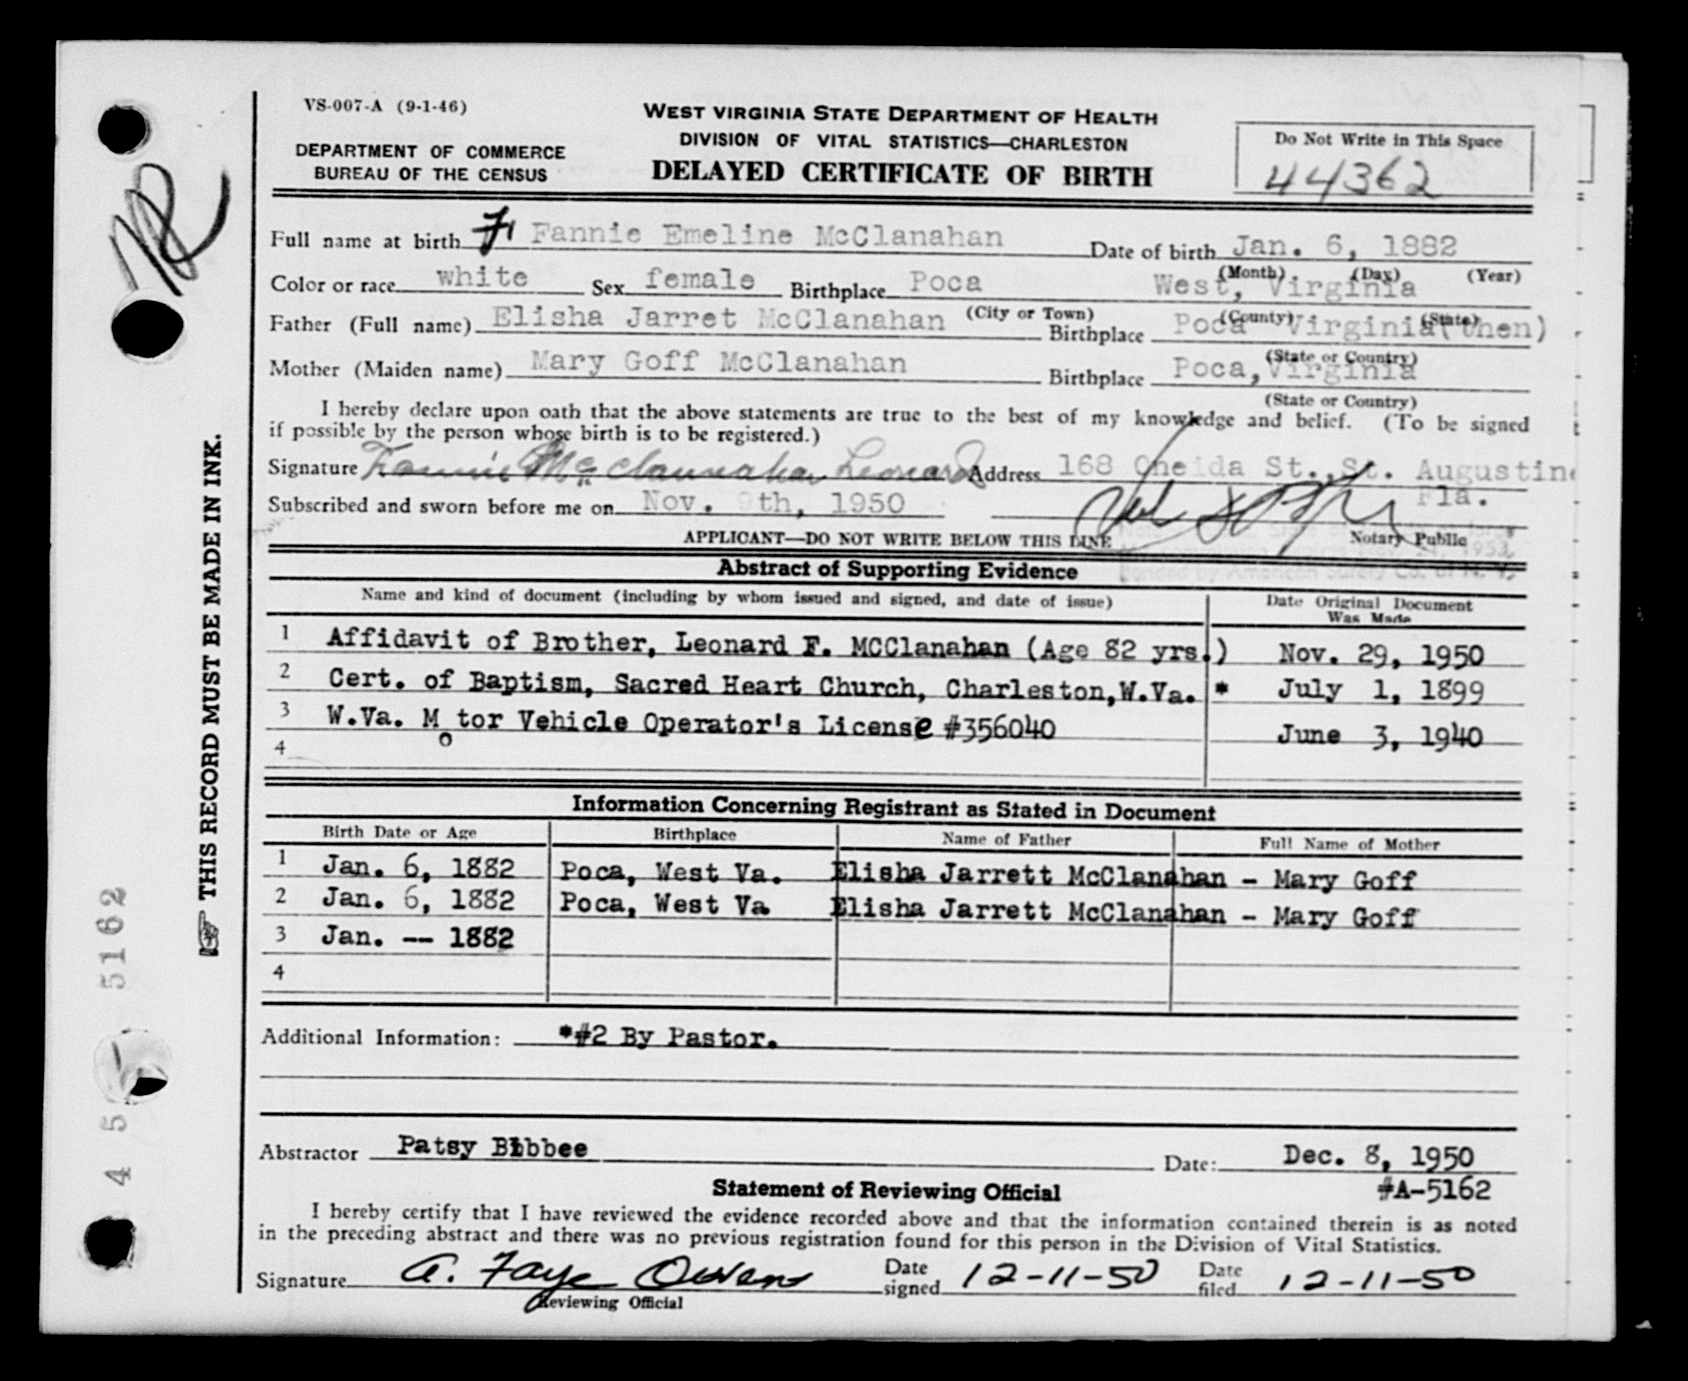 VS-007-A (9-1-46)
DEPARTMENT OF COMMERCE
BUREAU OF THE CENSUS
WEST VIRGINIA STATE DEPARTMENT OF HEALTH
DIVISION OF VITAL STATISTICS—CHARLESTON
DELAYED CERTIFICATE OF BIRTH
Do Not Write in This Space
44362
Full name at birth Fannie Emeline McClanahan Date of birth Jan. 6, 1882
(Month) (Day) (Year)
Color or race white Sex female Birthplace Poca West, Virginia
(City or Town) (County) (State)
Father (Full name) Elisha Jarret McClanahan Birthplace Poca Virginia(then)
(State or Country)
Mother (Maiden name) Mary Goff McClanahan Birthplace Poca, Virginia
(State or Country)
I hereby declare upon oath that the above statements are true to the best of my knowledge and belief. (To be signed
if possible by the person whose birth is to be registered.)
Signature Fannie McClannahan Leonard Address 168 Oneida St., St. Augustine
Fla.
Subscribed and sworn before me on Nov. 9th, 1950
Notary Public
APPLICANT—DO NOT WRITE BELOW THIS LINE
Abstract of Supporting Evidence
Name and kind of document (including by whom issued and signed, and date of issue) Date Original Document
Was Made
1 Affidavit of Brother, Leonard F. MCClanahan (Age 82 yrs.) Nov. 29, 1950
2 Cert. of Baptism, Sacred Heart Church, Charleston,W.Va. * July 1, 1899
3 W.Va. Motor Vehicle Operator's License #356040 June 3, 1940
4
Information Concerning Registrant as Stated in Document
Birth Date or Age Birthplace Name of Father Full Name of Mother
1 Jan. 6, 1882 Poca, West Va. Elisha Jarrett McClanahan - Mary Goff
2 Jan. 6, 1882 Poca, West Va Elisha Jarrett McClanahan - Mary Goff
3 Jan. -- 1882
4
Additional Information: *#2 By Pastor.
Abstractor Patsy Bibbee Date: Dec. 8, 1950
#A-5162
Statement of Reviewing Official
I hereby certify that I have reviewed the evidence recorded above and that the information contained therein is as noted
in the preceding abstract and there was no previous registration found for this person in the Division of Vital Statistics.
Signature A. Faye Owens Date signed 12-11-50 Date filed 12-11-50
Reviewing Official
THIS RECORD MUST BE MADE IN INK.
4 5 5162